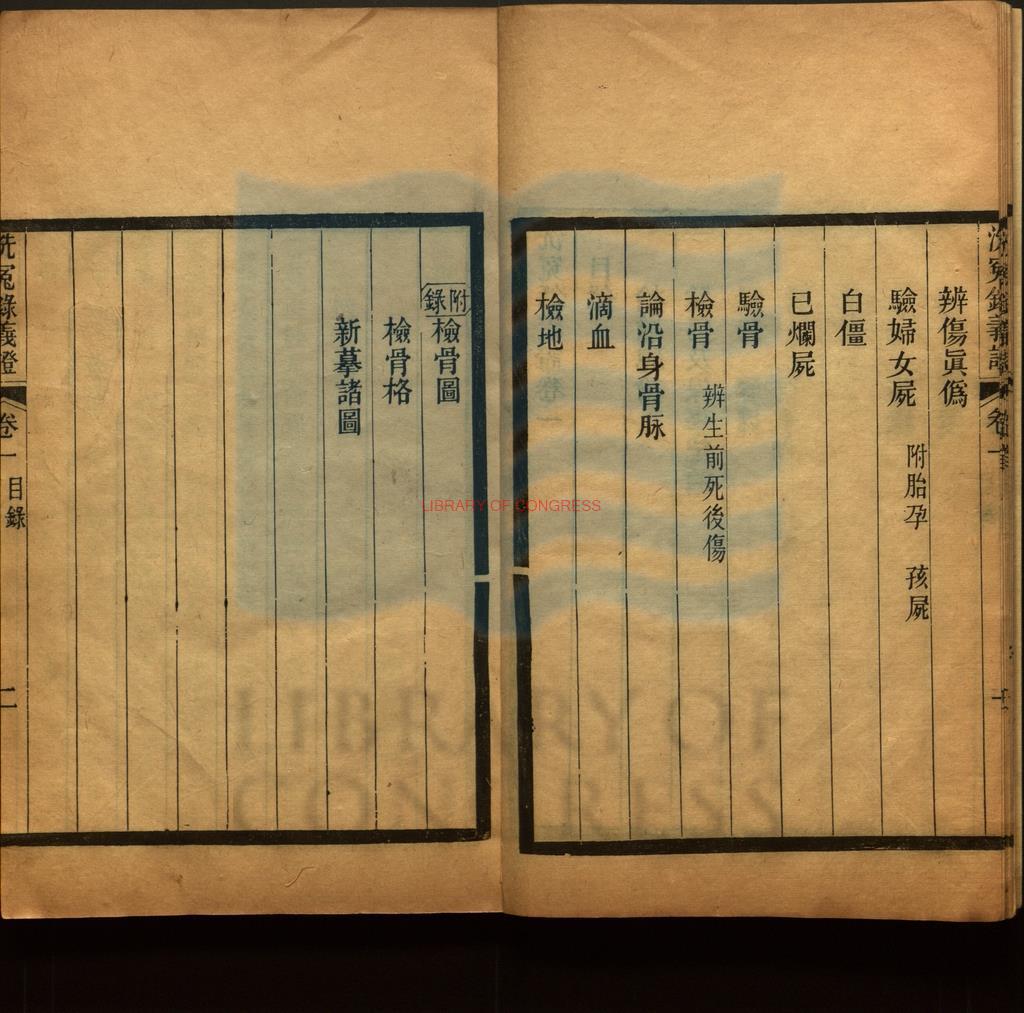 辨傷眞僞
驗婦女屍 附胎孕 孩屍
白僵
已爛屍
驗骨
檢骨 辨生前死後傷
論沿身骨脉
滴血
檢地
附錄 檢骨圖
檢骨格
新摹諸圖
洗冤錄義證 卷一 目錄 二
LIBRARY OF CONGRESS